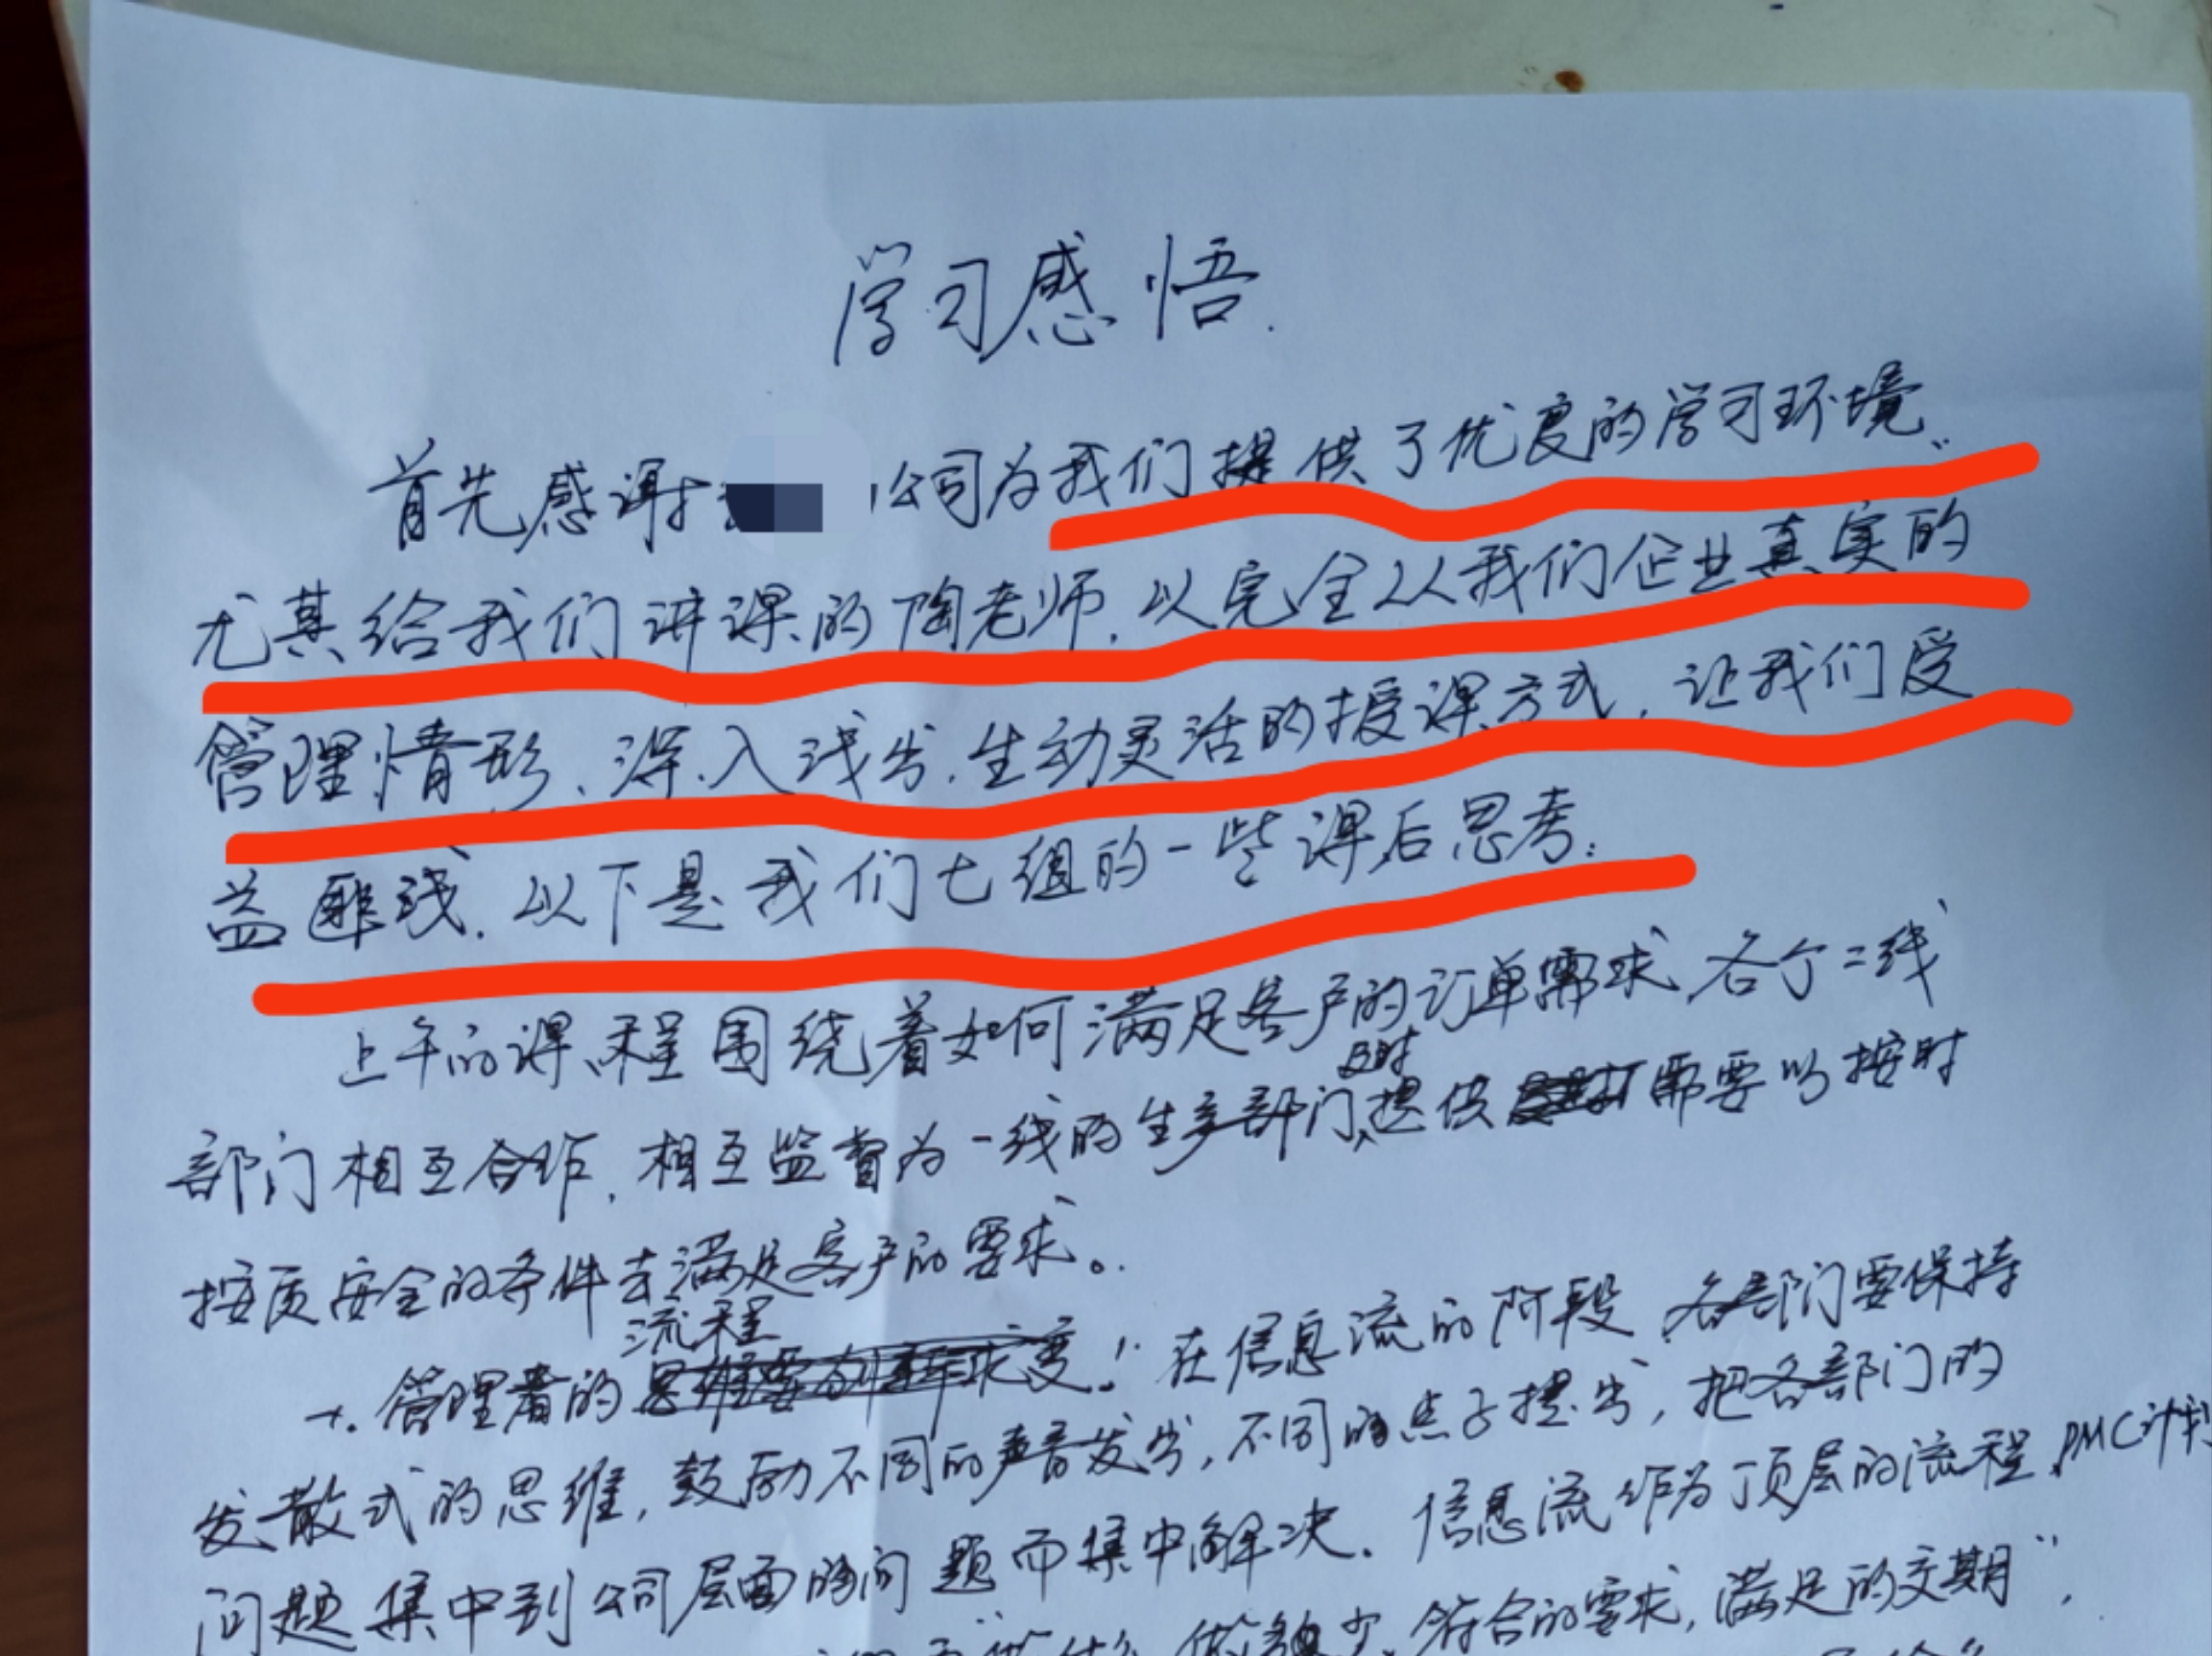 学习感悟.
首先感谢 公司为我们提供了优度的学习环境.
尤其给我们讲课的陶老师,以完全从我们企业真实的
管理情形、深入浅出.生动灵活的授课方式,让我们受
益匪浅.以下是我们七组的一些课后思考:
上午的课程围绕着如何满足客户的订单需求,各个二线
部门相互合作,相互监督为一线的生产部门及时提供需要以按时
按质安全的条件去满足客户的要求。
一.管理者的流程!在信息流的阶段,各部门要保持
发散式的思维,鼓励不同的声音发出,不同的点子提出,把各部门的
问题集中到公司层面的问题而集中解决.信息流作为顶层的流程,PMC计划
做多少,符合的要求,满足的交期",